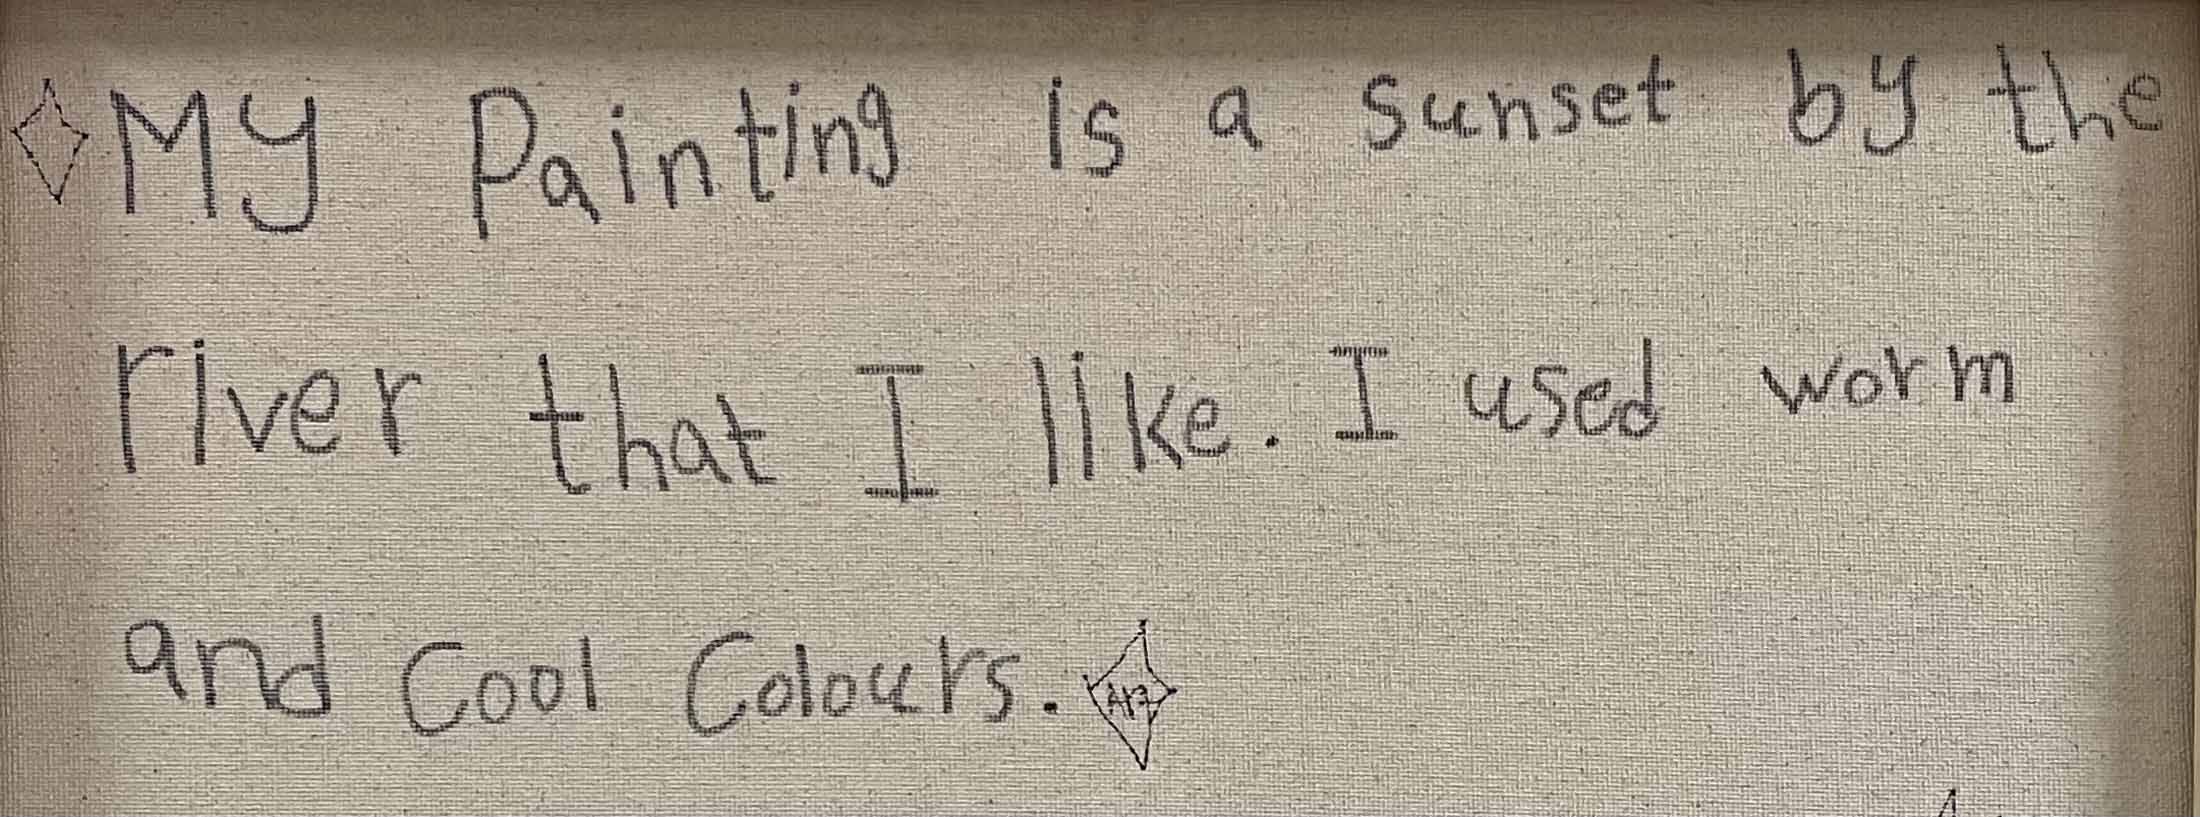 My Painting is a sunset by the
river that I like. I used worm
and Cool Colours.